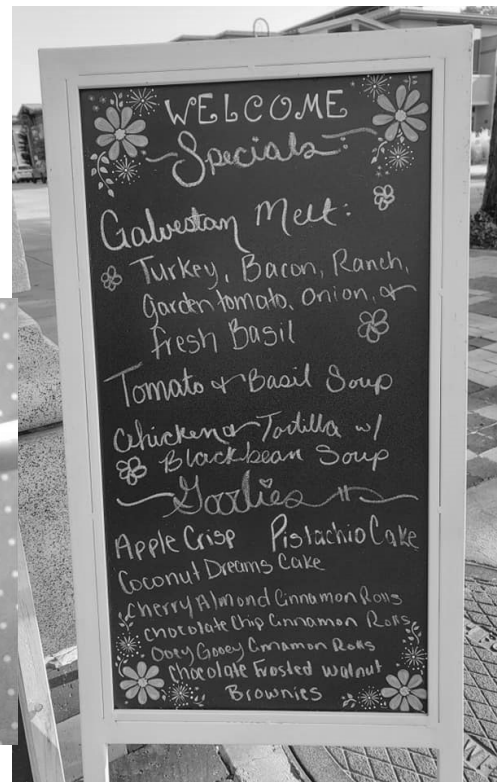 WELCOME
Specials
Galvestan Melt:
Turkey, Bacon, Ranch,
Garden tomato, Onion, &
fresh Basil
Tomato & Basil Soup
Chicken & Tortilla w/
Blackbean Soup
Goodies
Apple Crisp Pistachio Cake
Coconut Dreams Cake
Cherry Almond Cinnamon Rolls
Chocolate Chip Cinnamon Rolls
Ooey Gooey Cinnamon Rolls
Chocolate Frosted Walnut
Brownies